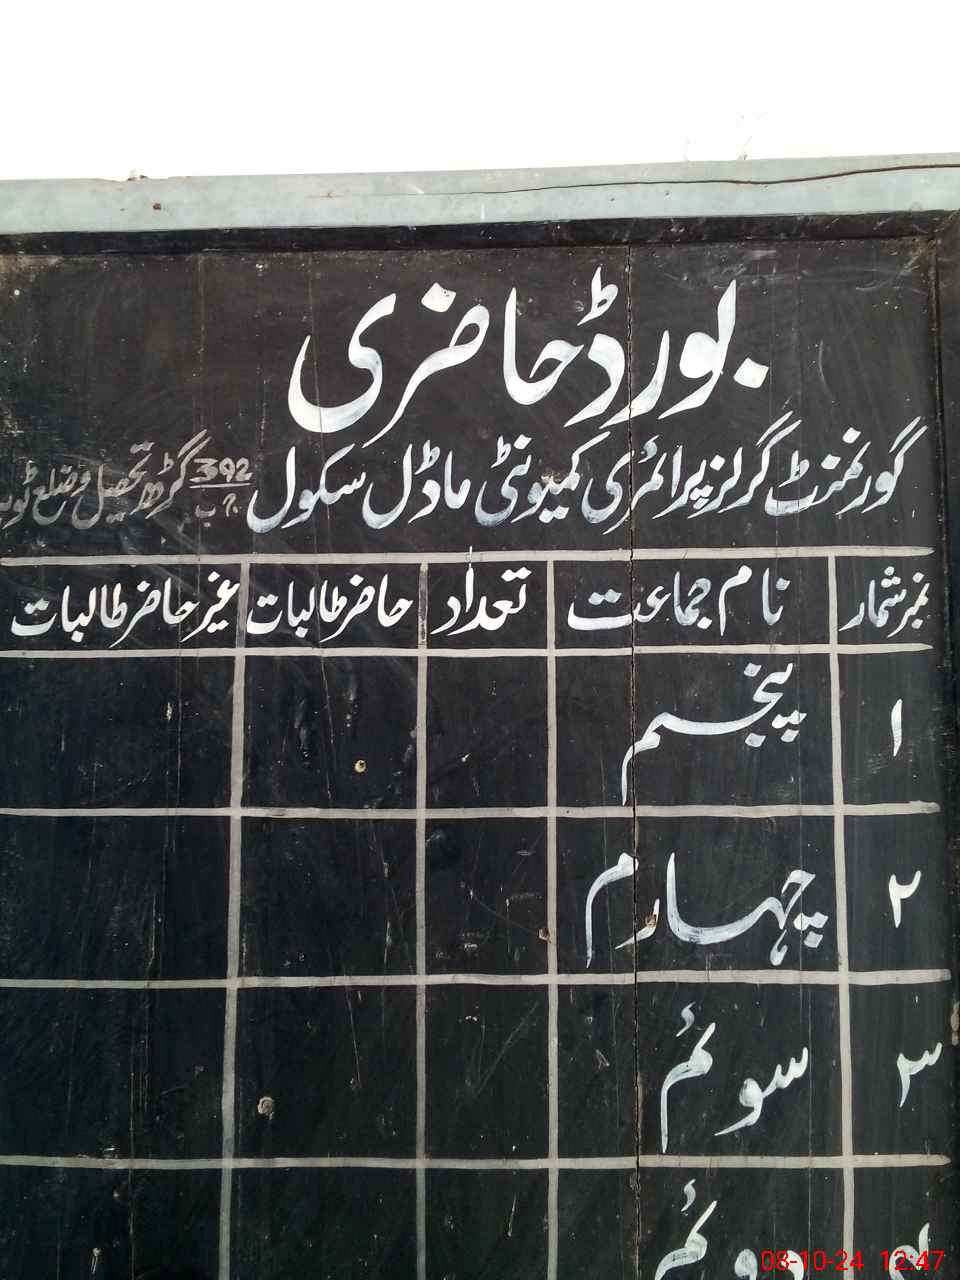 بورڈ حاضری
گورنمنٹ گرلز پرائمری کمیونٹی ماڈل سکول 392 ج ب گڑھ تحصیل و ضلع ٹوبہ
نمبر شمار نام جماعت تعداد حاضر طالبات غیر حاضر طالبات
۱ پنجم
۲ چہارم
۳ سوئم
دوئم
08-10-24 12:47